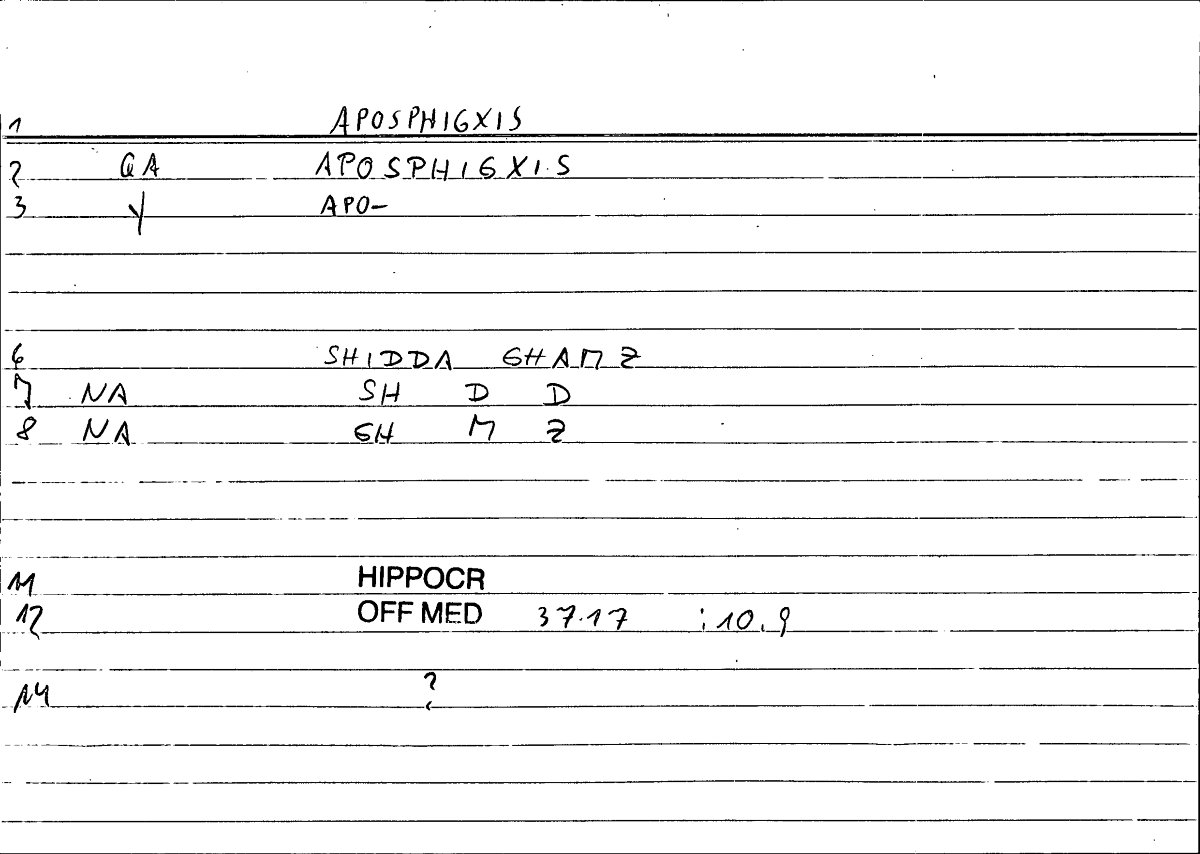 1 APOSPHIGXIS
2 GA APOSPHIGXIS
3 Y APO-
6 SHIDDA GHAMZ
7 NA SH D D
8 NA GH M Z
11 HIPPOCR
12 OFF MED 37.17 :10.9
14 ?